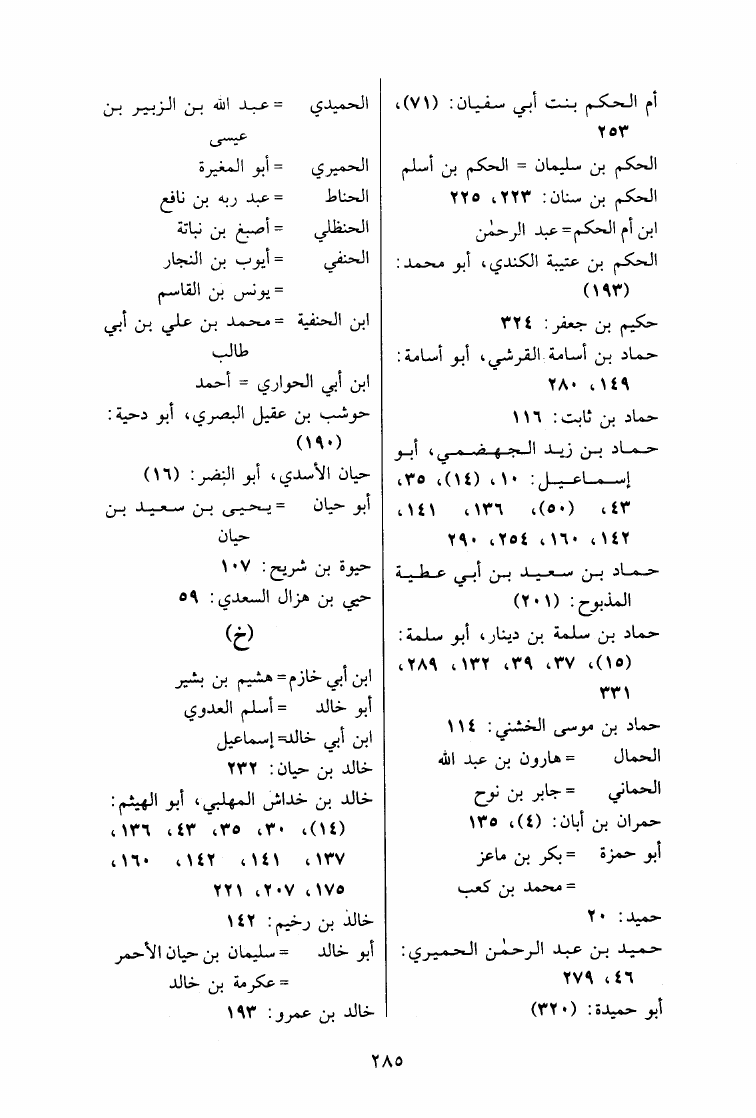 أم الحكم بنت أبي سفيان: (٧١)،
٢٥٣
الحكم بن سليمان = الحكم بن أسلم
الحكم بن سنان: ٢٢٣، ٢٢٥
ابن أم الحكم = عبد الرحمٰن
الحكم بن عتيبة الكندي، أبو محمد:
(١٩٣)
حكيم بن جعفر: ٣٢٤
حماد بن أسامة القرشي، أبو أسامة:
١٤٩، ٢٨٠
حماد بن ثابت: ١١٦
حماد بن زيد الجهضمي، أبو
إسماعيل: ١٠، (١٤)، ٣٥،
٤٣، (٥٠)، ١٣٦، ١٤١،
١٤٢، ١٦٠، ٢٥٤، ٢٩٠
حماد بن سعيد بن أبي عطية
المذبوح: (٢٠١)
حماد بن سلمة بن دينار، أبو سلمة:
(١٥)، ٣٧، ٣٩، ١٣٢، ٢٨٩،
٣٣١
حماد بن موسى الخشني: ١١٤
الحمال = هارون بن عبد الله
الحماني = جابر بن نوح
حمران بن أبان: (٤)، ١٣٥
أبو حمزة = بكر بن ماعز
= محمد بن كعب
حميد: ٢٠
حميد بن عبد الرحمٰن الحميري:
٤٦، ٢٧٩
أبو حميدة: (٣٢٠)
الحميدي = عبد الله بن الزبير بن
عيسى
الحميري = أبو المغيرة
الحناط = عبد ربه بن نافع
الحنظلي = أصبغ بن نباتة
الحنفي = أيوب بن النجار
= يونس بن القاسم
ابن الحنفية = محمد بن علي بن أبي
طالب
ابن أبي الحواري = أحمد
حوشب بن عقيل البصري، أبو دحية:
(١٩٠)
حيان الأسدي، أبو النضر: (١٦)
أبو حيان = يحيى بن سعيد بن
حيان
حيوة بن شريح: ١٠٧
حيي بن هزال السعدي: ٥٩
(خ)
ابن أبي خازم = هشيم بن بشير
أبو خالد = أسلم العدوي
ابن أبي خالد = إسماعيل
خالد بن حيان: ٢٣٢
خالد بن خداش المهلبي، أبو الهيثم:
(١٤)، ٣٠، ٣٥، ٤٣، ١٣٦،
١٣٧، ١٤١، ١٤٢، ١٦٠،
١٧٥، ٢٠٧، ٢٢١
خالد بن رخيم: ١٤٢
أبو خالد = سليمان بن حيان الأحمر
= عكرمة بن خالد
خالد بن عمرو: ١٩٣
٢٨٥